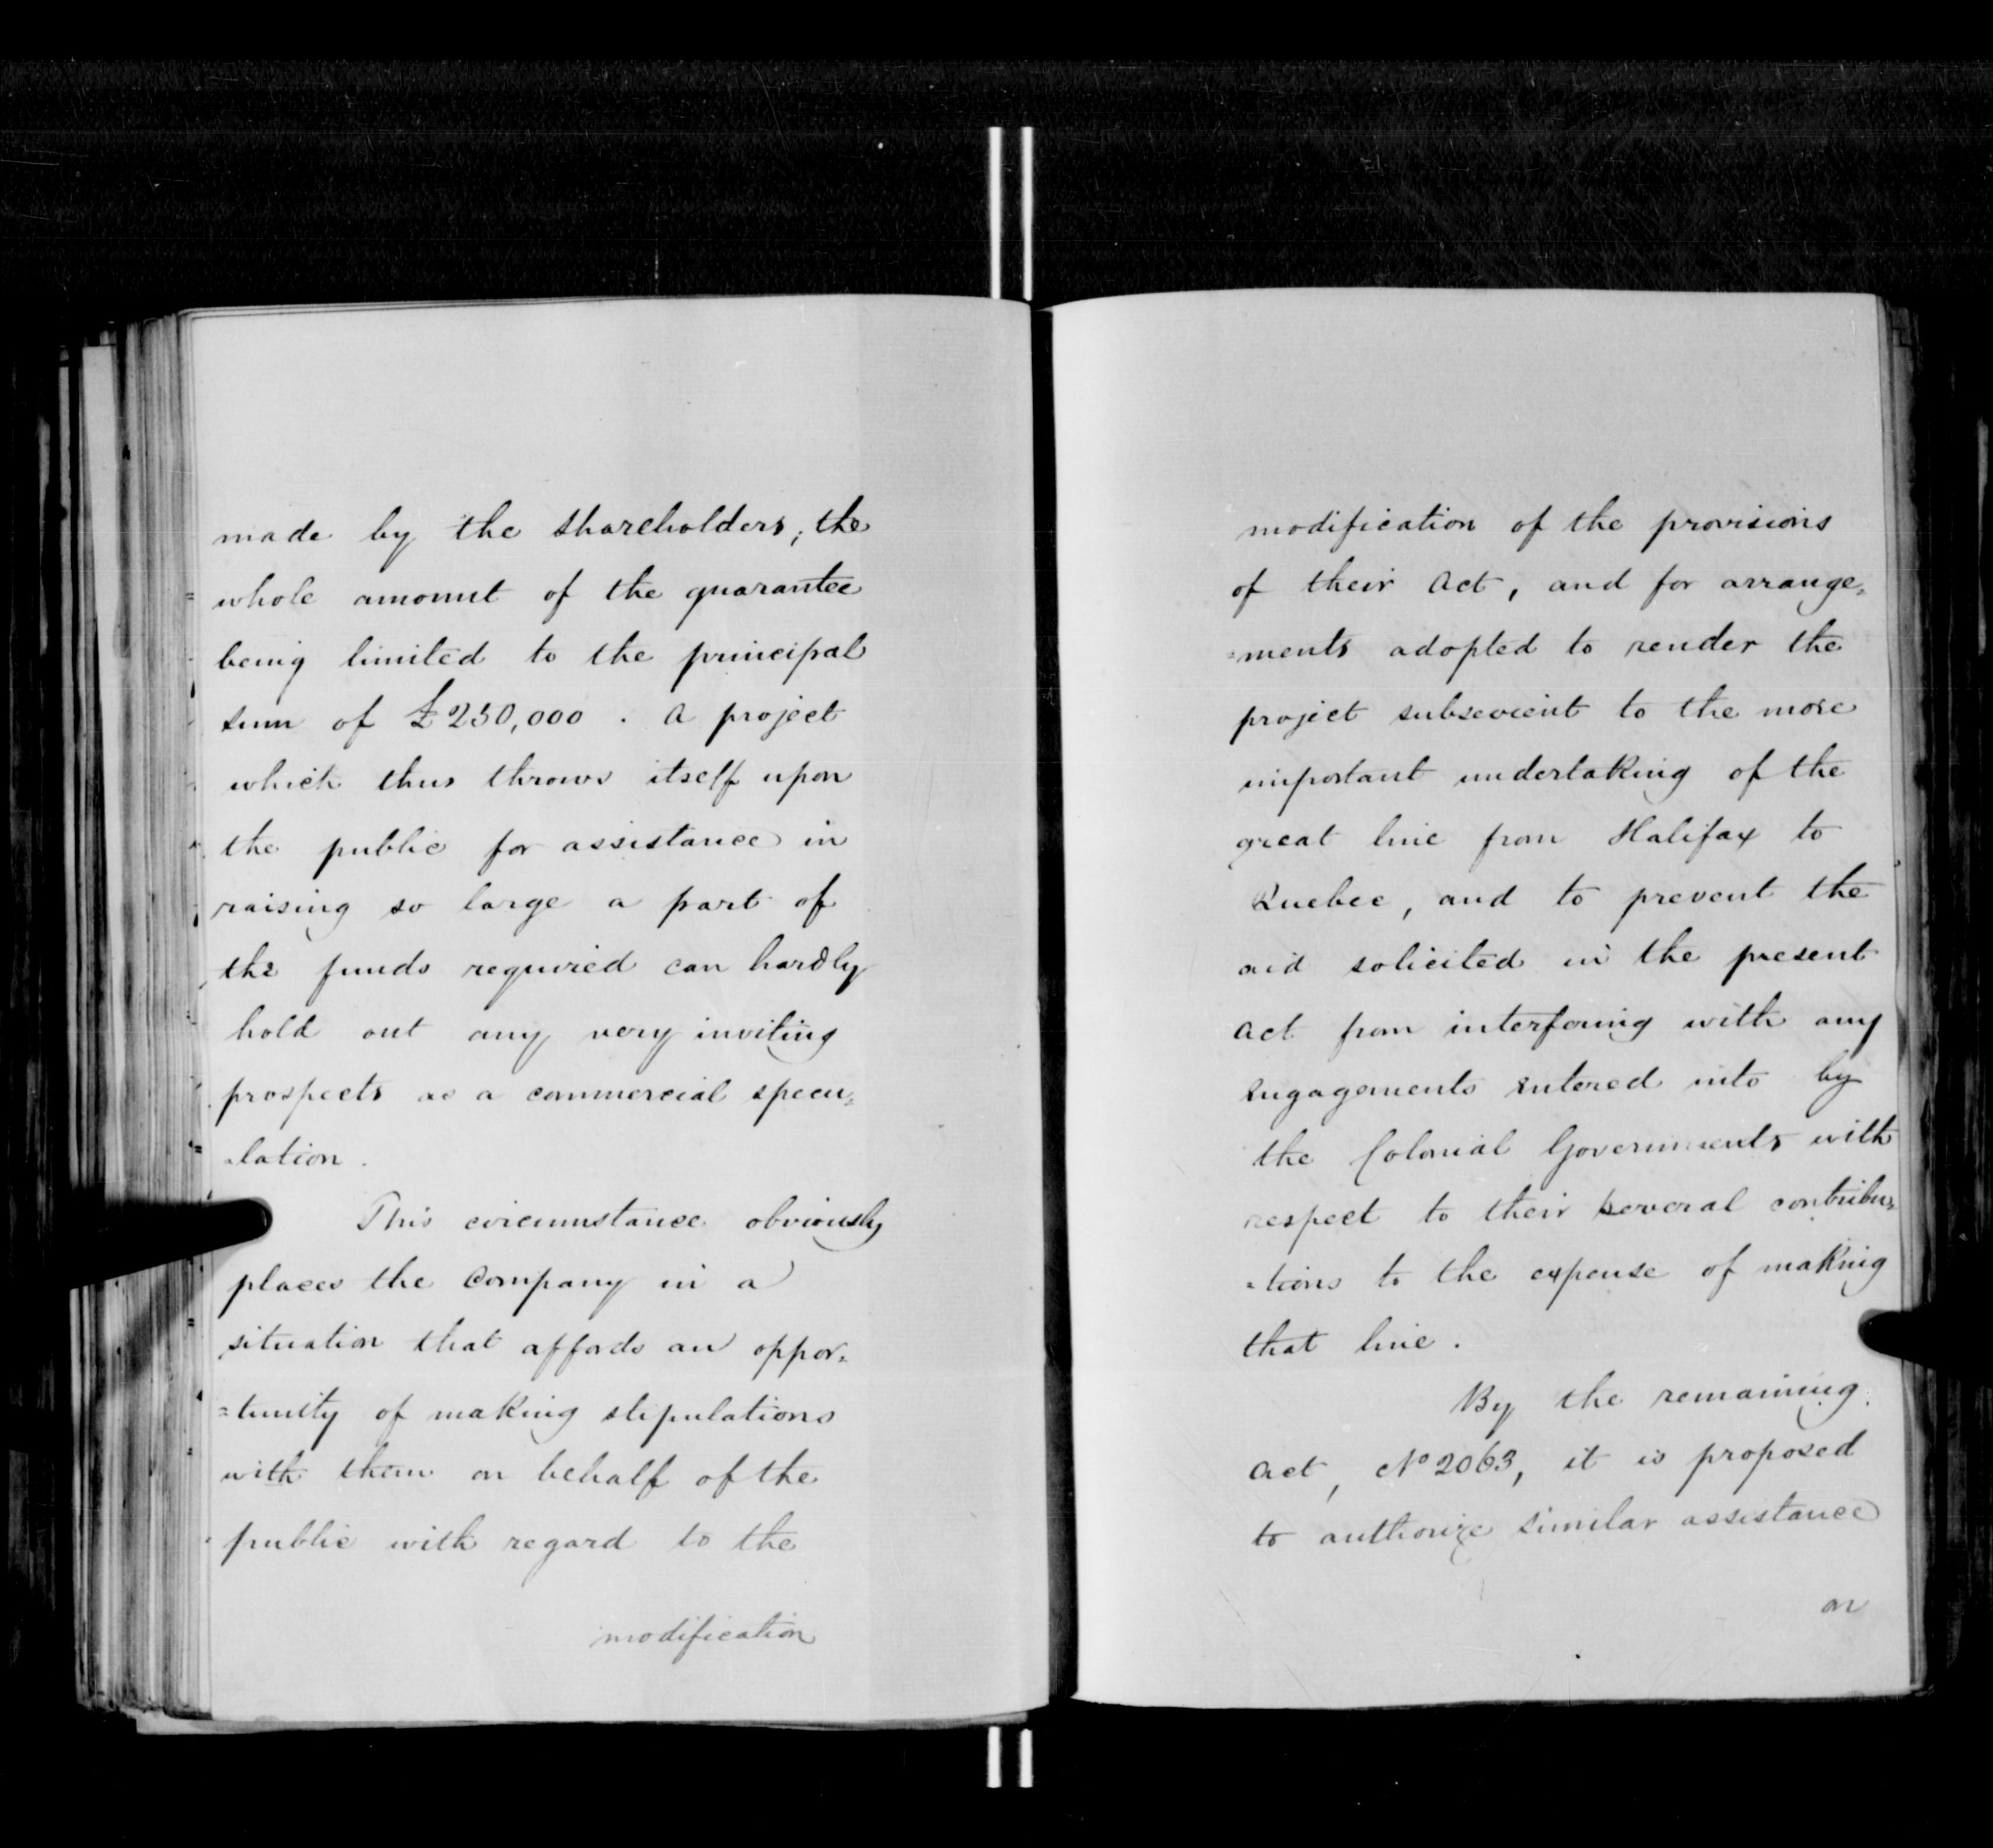 made by the shareholders, the
whole amount of the guarantee
being limited to the principal
sum of £250,000. A project
which thus throws itself upon
the public for assistance in
raising so large a part of
the funds required can hardly
hold out any very inviting
prospects as a commercial specu=
=lation.
This circumstance obviously
places the Company in a
situation that affords an oppor=
=tunity of making stipulations
with them on behalf of the
public with regard to the
modification
modification of the provisions
of their Act, and for arrange=
=ments adopted to render the
project subservient to the more
important undertaking of the
great line from Halifax to
Quebec, and to prevent the
aid solicited in the present
Act from interfering with any
Engagements entered into by
the Colonial Governments with
respect to their several contribu=
=tions to the expense of making
that line.
By the remaining
Act, No 2063, it is proposed
to authorize similar assistance
on